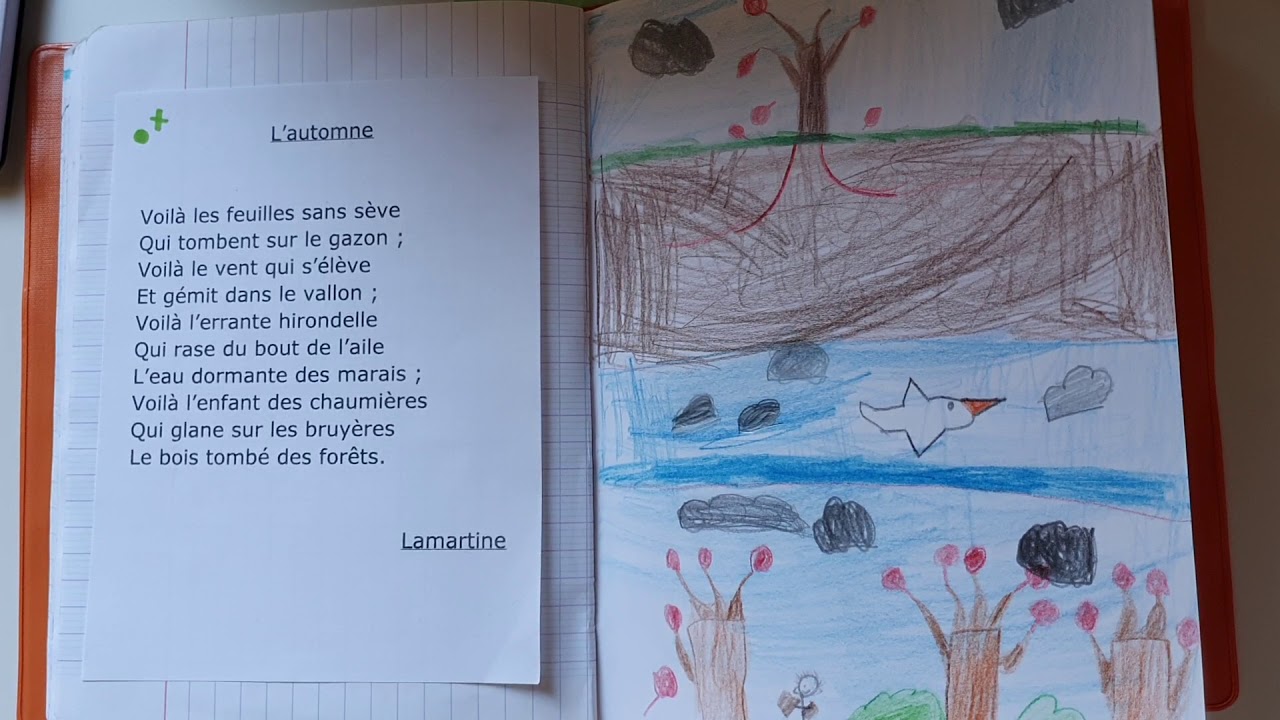 L'automne
Voilà les feuilles sans sève
Qui tombent sur le gazon ;
Voilà le vent qui s'élève
Et gémit dans le vallon ;
Voilà l'errante hirondelle
Qui rase du bout de l'aile
L'eau dormante des marais ;
Voilà l'enfant des chaumières
Qui glane sur les bruyères
Le bois tombé des forêts.
Lamartine